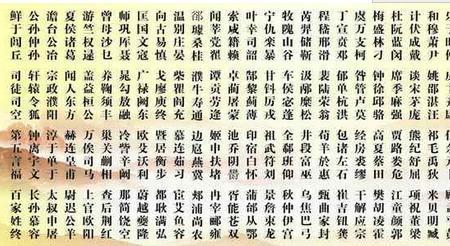 和穆萧尹 姚邵湛汪 祁毛禹狄 米贝明臧
计伏成戴 谈宋茅庞 熊纪舒屈 项祝董梁
杜阮蓝闵 席季麻强 贾路娄危 江童颜郭
梅盛林刁 钟徐邱骆 高夏蔡田 樊胡凌霍
虞万支柯 昝管卢莫 经房裘缪 干解应宗
丁宣贲邓 郁单杭洪 包诸左石 崔吉钮龚
程嵇邢滑 裴陆荣翁 荀羊於惠 甄曲家封
芮羿储靳 汲邴糜松 井段富巫 乌焦巴弓
牧隗山谷 车侯宓蓬 全郗班仰 秋仲伊宫
宁仇栾暴 甘钭厉戎 祖武符刘 景詹束龙
叶幸司韶 郜黎蓟薄 印宿白怀 蒲邰从鄂
索咸籍赖 卓蔺屠蒙 池乔阴郁 胥能苍双
闻莘党翟 谭贡劳逄 姬申扶堵 冉宰郦雍
郤璩桑桂 濮牛寿通 边扈燕冀 郏浦尚农
温别庄晏 柴瞿阎充 慕连茹习 宦艾鱼容
向古易慎 戈廖庾终 暨居衡步 都耿满弘
匡国文寇 广禄阙东 欧殳沃利 蔚越夔隆
师巩厍聂 晁勾敖融 冷訾辛阚 那简饶空
曾毋沙乜 养鞠须丰 巢关蒯相 查后荆红
游竺权逯 盖益桓公 万俟司马 上官欧阳
夏侯诸葛 闻人东方 赫连皇甫 尉迟公羊
澹台公冶 宗政濮阳 淳于单于 太叔申屠
公孙仲孙 轩辕令狐 钟离宇文 长孙慕容
鲜于闾丘 司徒司空 第五言福 百家姓终